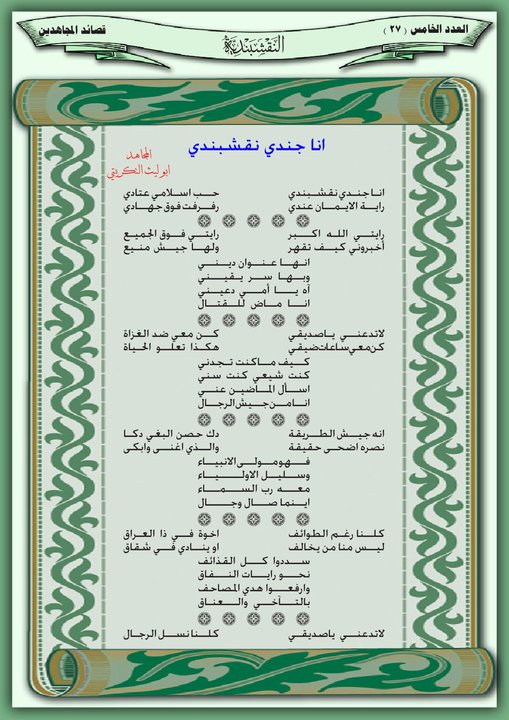 العدد الخامس ( ٢٧ )
النقشبندية
قصائد المجاهدين
انا جندي نقشبندي
المجاهد
ابو ليث التكريتي
انا جندي نقشبندي حب اسلامي عتادي
راية الايمان عندي رفرفت فوق جهادي
رايتي الله اكبر رايتي فوق الجميع
أخبروني كيف تقهر ولها جيش منيع
انها عنوان ديني
وبها سر يقيني
آه يا أمي دعيني
انا ماض للقتال
لاتدعني ياصديقي كن معي ضد الغزاة
كن معي ساعات ضيقي هكذا تعلو الحياة
كيف ماكنت تجدني
كنت شيعي كنت سني
اسأل الماضين عني
انا من جيش الرجال
انه جيش الطريقة دك حصن البغي دكا
نصره اضحى حقيقة والذي اغنى وابكى
فهو مولى الانبياء
وسليل الاولياء
معه رب السماء
اينما صال وجال
كلنا رغم الطوائف اخوة في ذا العراق
ليس منا من يخالف او ينادي في شقاق
سددوا كل القذائف
نحو رايات النفاق
وارفعوا هدي المصاحف
بالتآخي والعناق
لاتدعني ياصديقي كلنا نسل الرجال